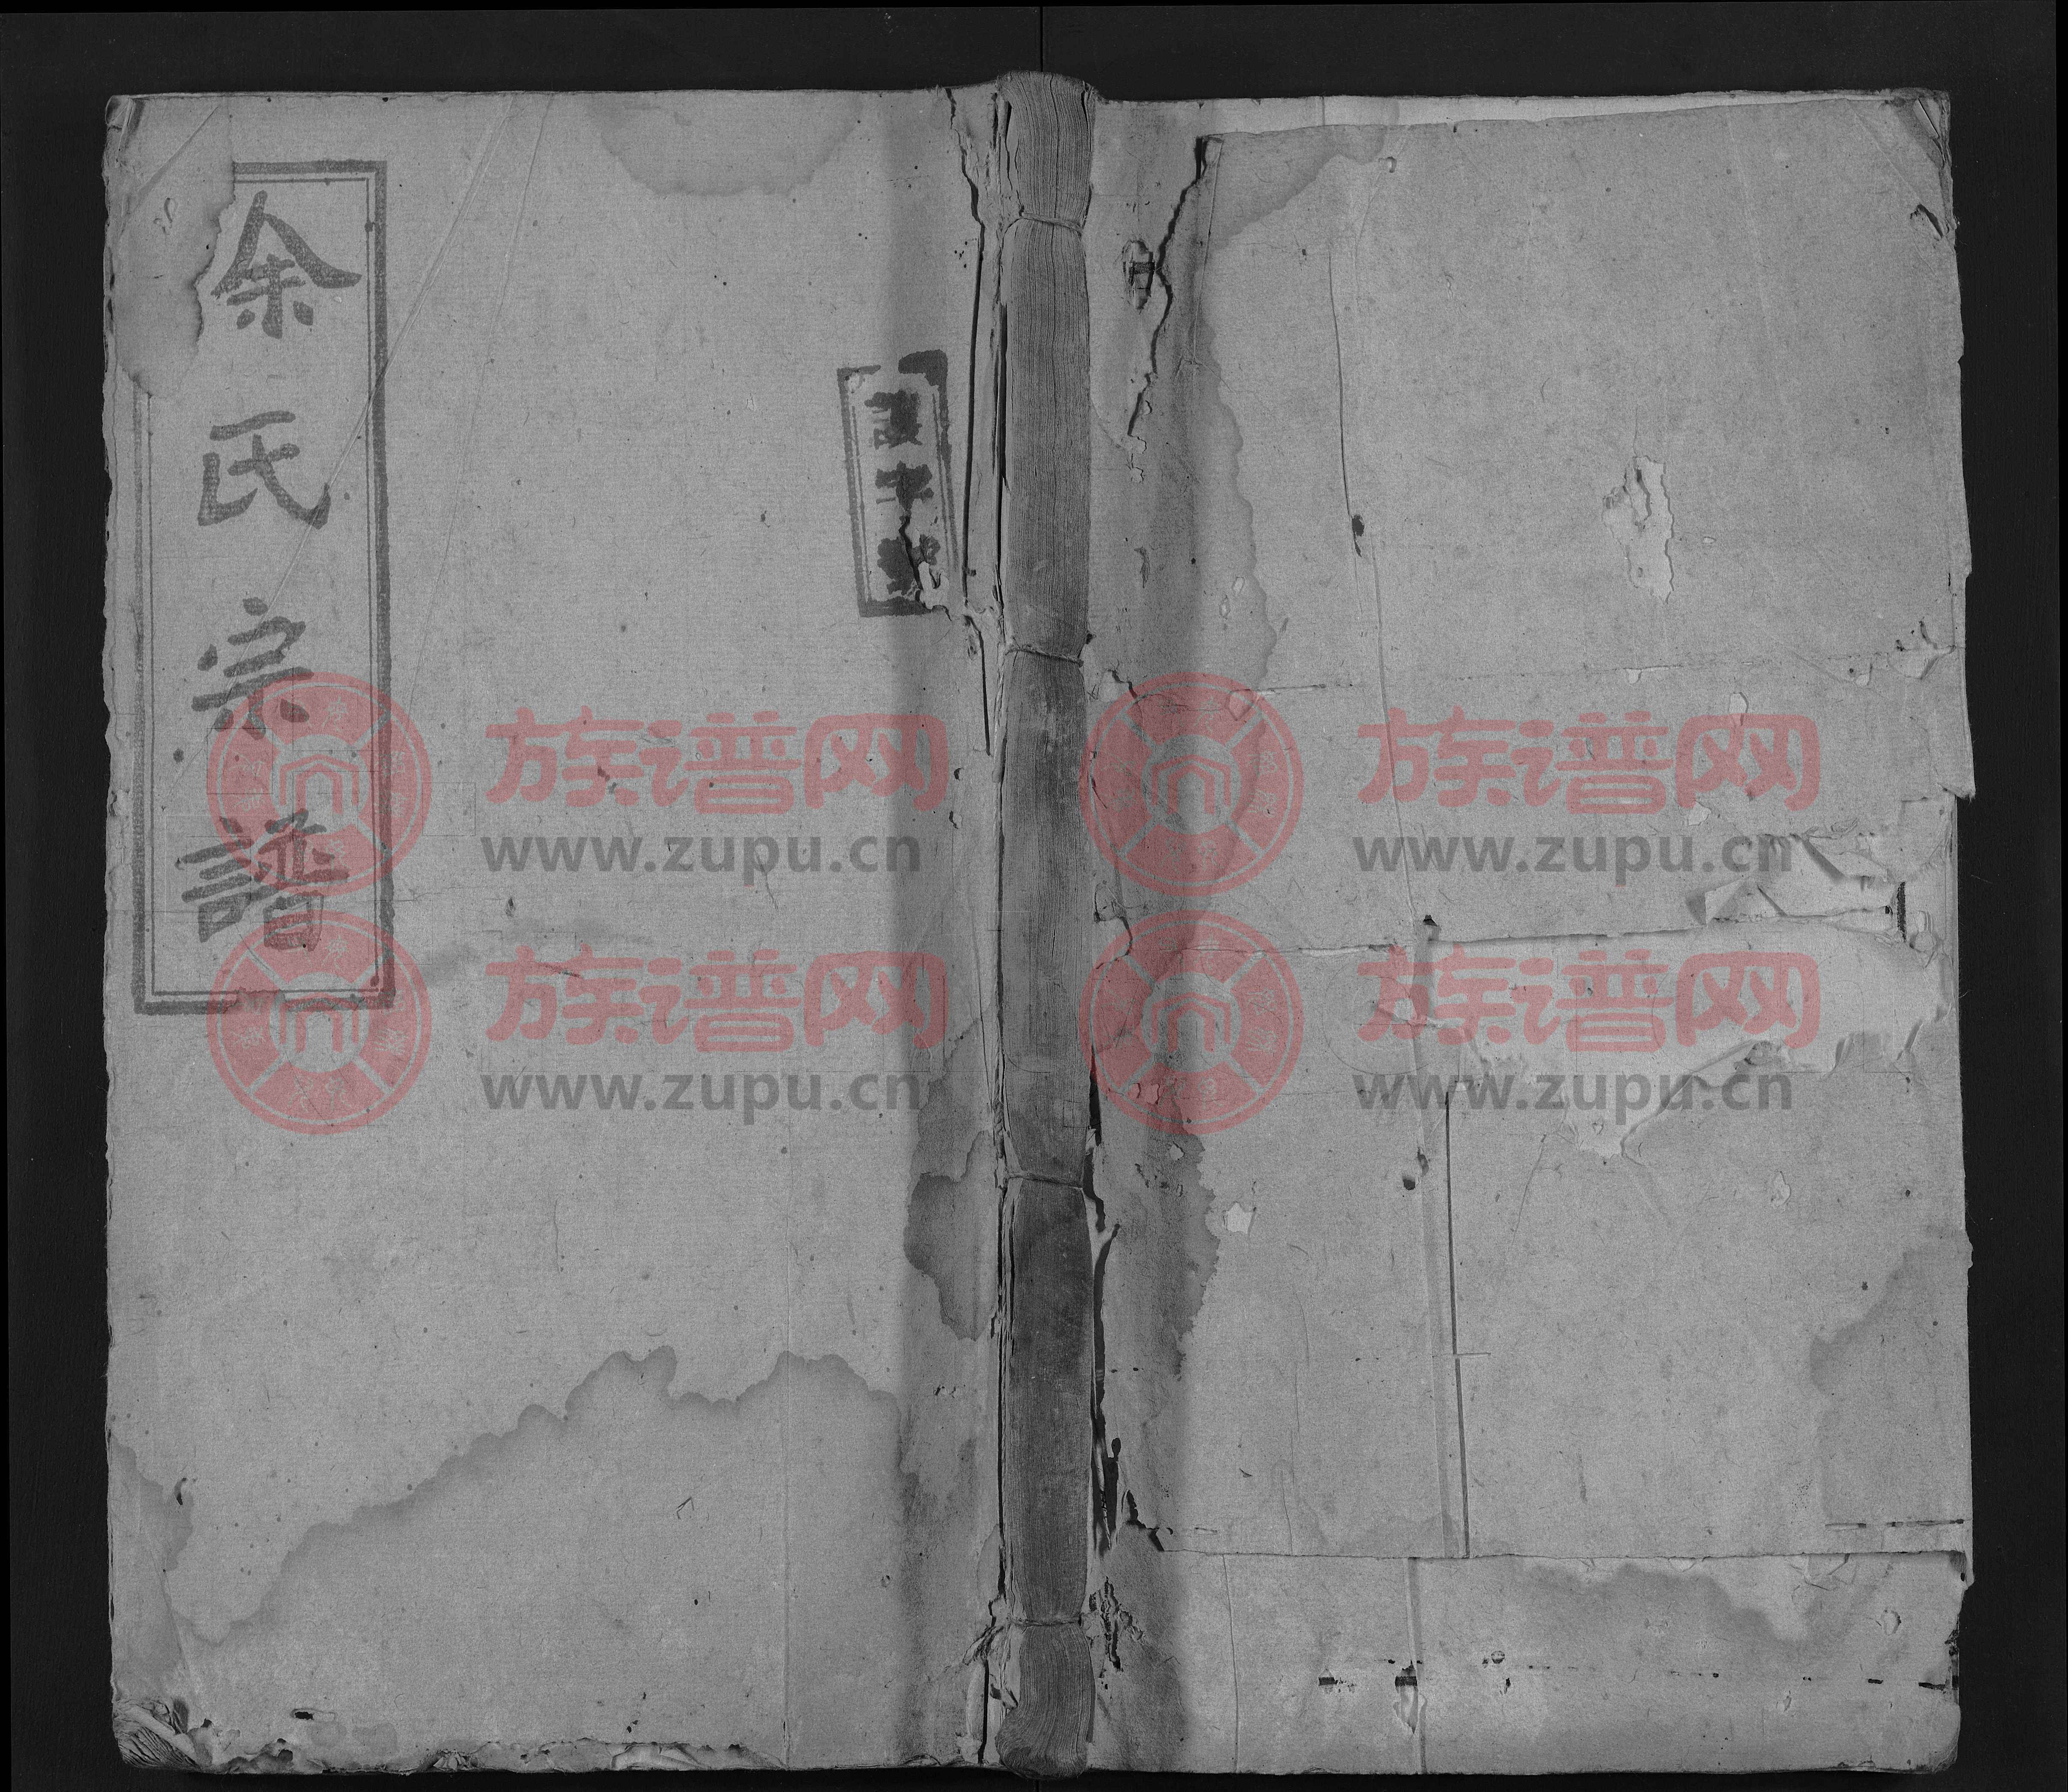 余氏宗譜
字號
族谱网
www.zupu.cn
族谱网
www.zupu.cn
族谱网
www.zupu.cn
族谱网
www.zupu.cn